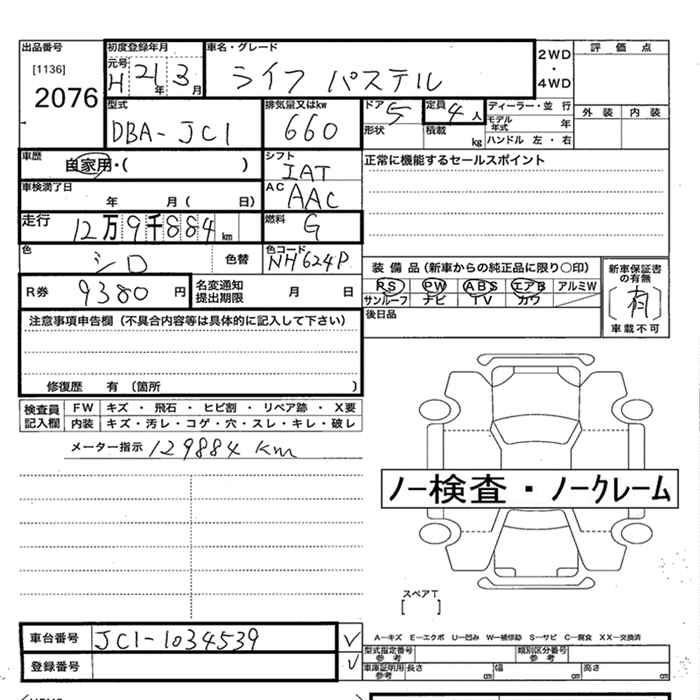 出品番号 初度登録年月 車名・グレード 2WD・4WD 評価点
[1136] 2076 元号 H 21年 3月 ライフ パステル
外装 内装
型式 排気量又はkw ドア 5 定員 4人 ディーラー・並行
DBA-JC1 660 形状 積載 kg モデル年式 年
ハンドル 左・右
車歴 自家用・( ) シフト IAT 正常に機能するセールスポイント
車検満了日 年 月( 日) AC AAC
走行 12万9千884km 燃料 G
色 シロ 色替 色コード NH624P
装備品(新車からの純正品に限り〇印) 新車保証書の有無
R券 9380円 名変通知提出期限 月 日 PS PW ABS エアB アルミW [有]
サンルーフ ナビ TV カワ 車載不可
注意事項申告欄(不具合内容等は具体的に記入して下さい) 後日品
修復歴 有(箇所 )
検査員記入欄 FW キズ・飛石・ヒビ割・リペア跡・X要
内装 キズ・汚レ・コゲ・穴・スレ・キレ・破レ
メーター指示 129884 km
ノー検査・ノークレーム
スペアT
[ ]
車台番号 JC1-1034539 ✓ A―キズ E―エクボ U―凹み W―補修跡 S―サビ C―腐食 XX―交換済
登録番号 ✓ 型式指定番号 参考 類別区分番号 参考
車庫証明用 参考 長さ cm 幅 cm 高さ cm